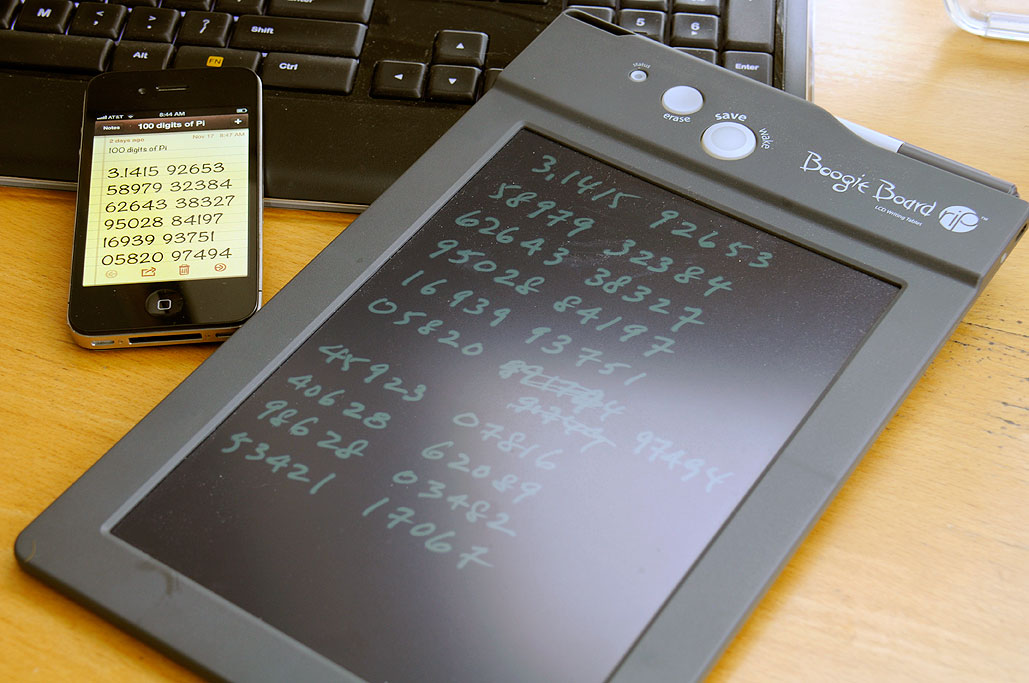 M
<
,
>
.
?
/
Shift
Alt
FN
Ctrl
5
6
Enter
AT&T 8:44 AM
Notes 100 digits of Pi +
2 days ago Nov 17 8:47 AM
100 digits of Pi
3.1415 92653
58979 32384
62643 38327
95028 84197
16939 93751
05820 97494
status
erase
save
wake
Boogie Board rip ™
LCD Writing Tablet
3.1415 92653
58979 32384
62643 38327
95028 84197
16939 93751
05820 97494
45923 07816
40628 62089
98628 03482
53421 17067